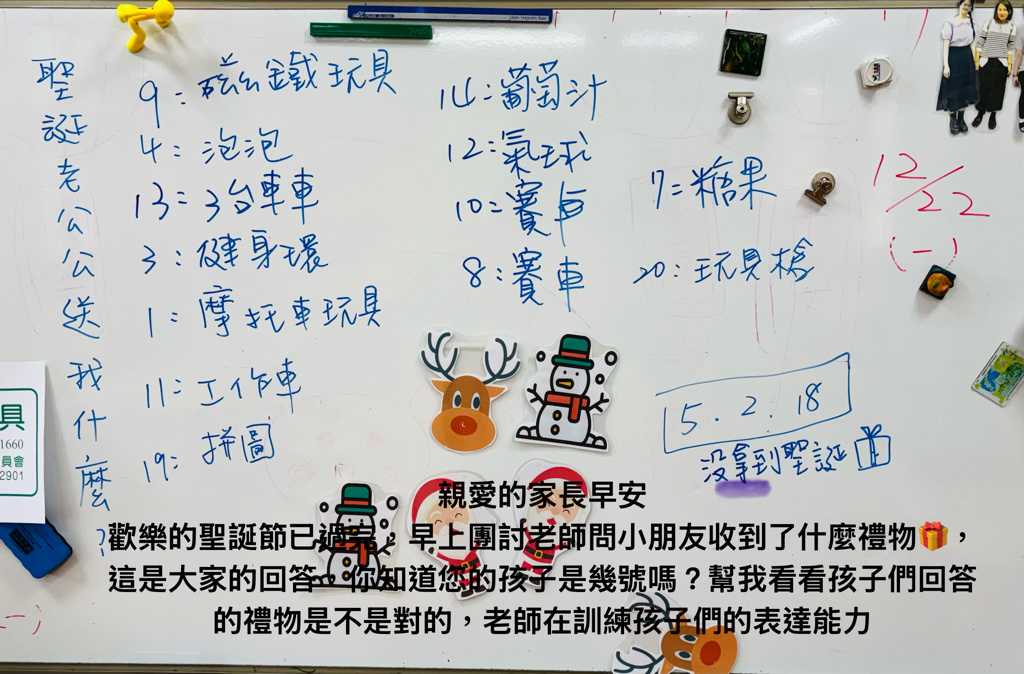 聖誕老公公送我什麼？
9：磁鐵玩具
4：泡泡
13：3台車車
3：健身環
1：摩托車玩具
11：工作車
19：拼圖
14：葡萄汁
12：氣球
10：賽車
8：賽車
7：糖果
20：玩具槍
12/22
(一)
5. 2. 18
沒拿到聖誕
具
1660
員會
2901
親愛的家長早安
歡樂的聖誕節已過完，早上團討老師問小朋友收到了什麼禮物🎁，
這是大家的回答，你知道您的孩子是幾號嗎？幫我看看孩子們回答
的禮物是不是對的，老師在訓練孩子們的表達能力